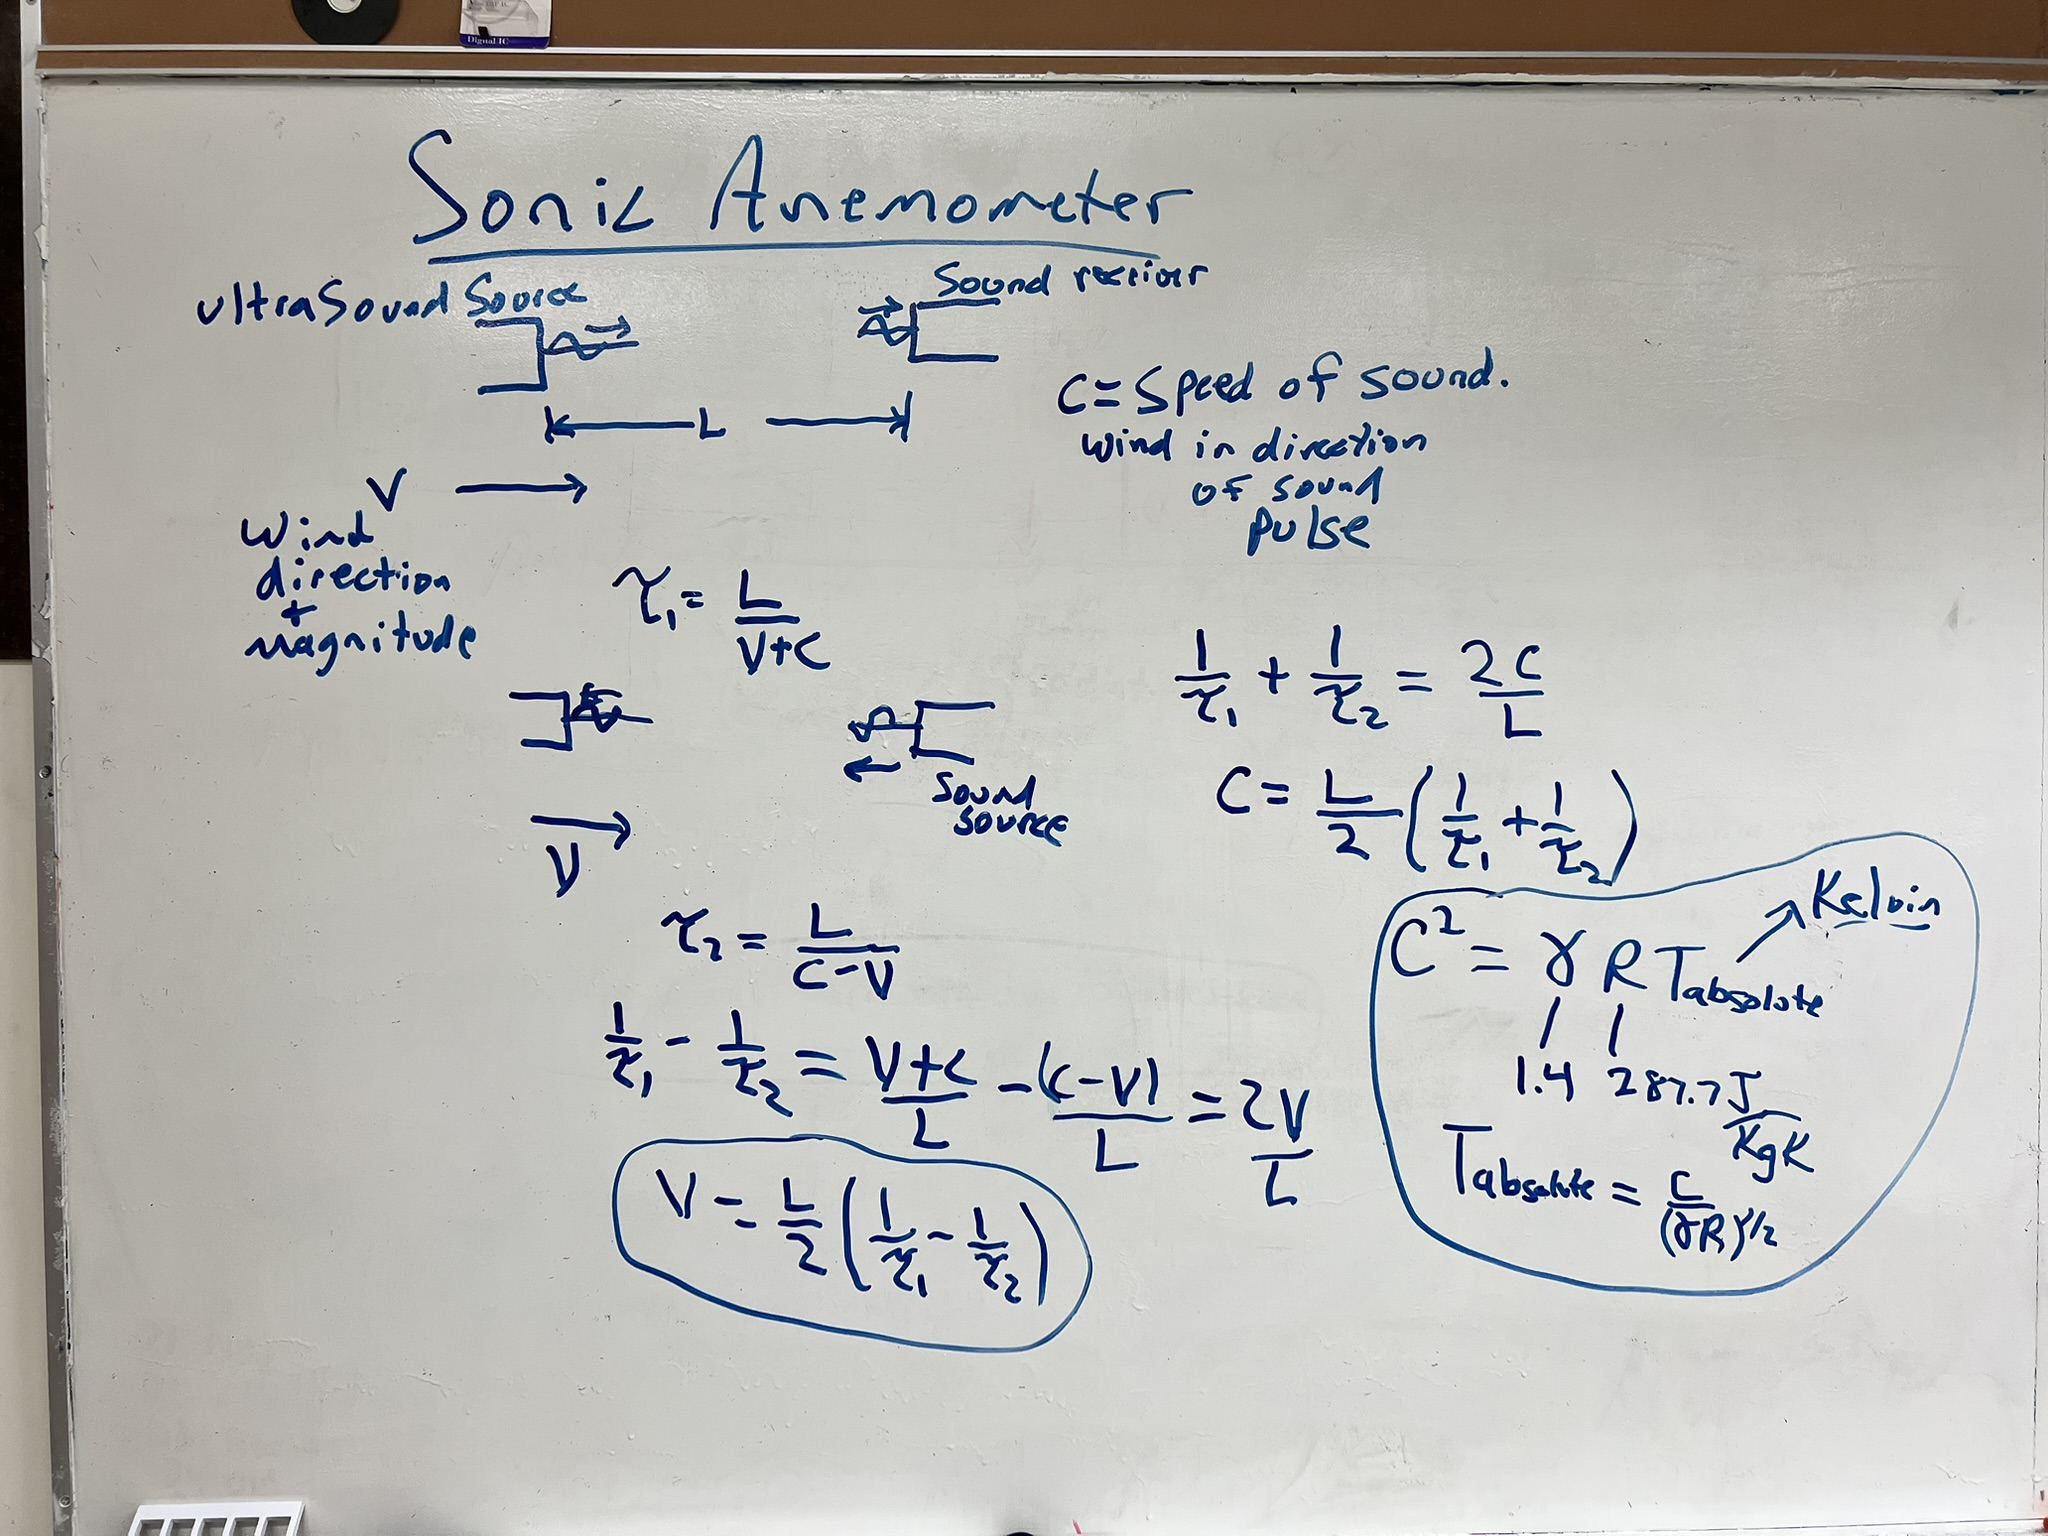 Digital IC
Sonic Anemometer
ultraSound Source
Sound reciever
L
C = Speed of sound.
wind in direction
of sound
pulse
V
Wind
direction
+
magnitude
τ₁ = L/(V+C)
1/τ₁ + 1/τ₂ = 2C/L
Sound
source
C = L/2 (1/τ₁ + 1/τ₂)
V
τ₂ = L/(C-V)
C² = γ R Tabsolute
Kelvin
1.4 287.7 J/KgK
1/τ₁ - 1/τ₂ = (V+C)/L - (C-V)/L = 2V/L
Tabsolute = C/(γR)^1/2
V = L/2 (1/τ₁ - 1/τ₂)